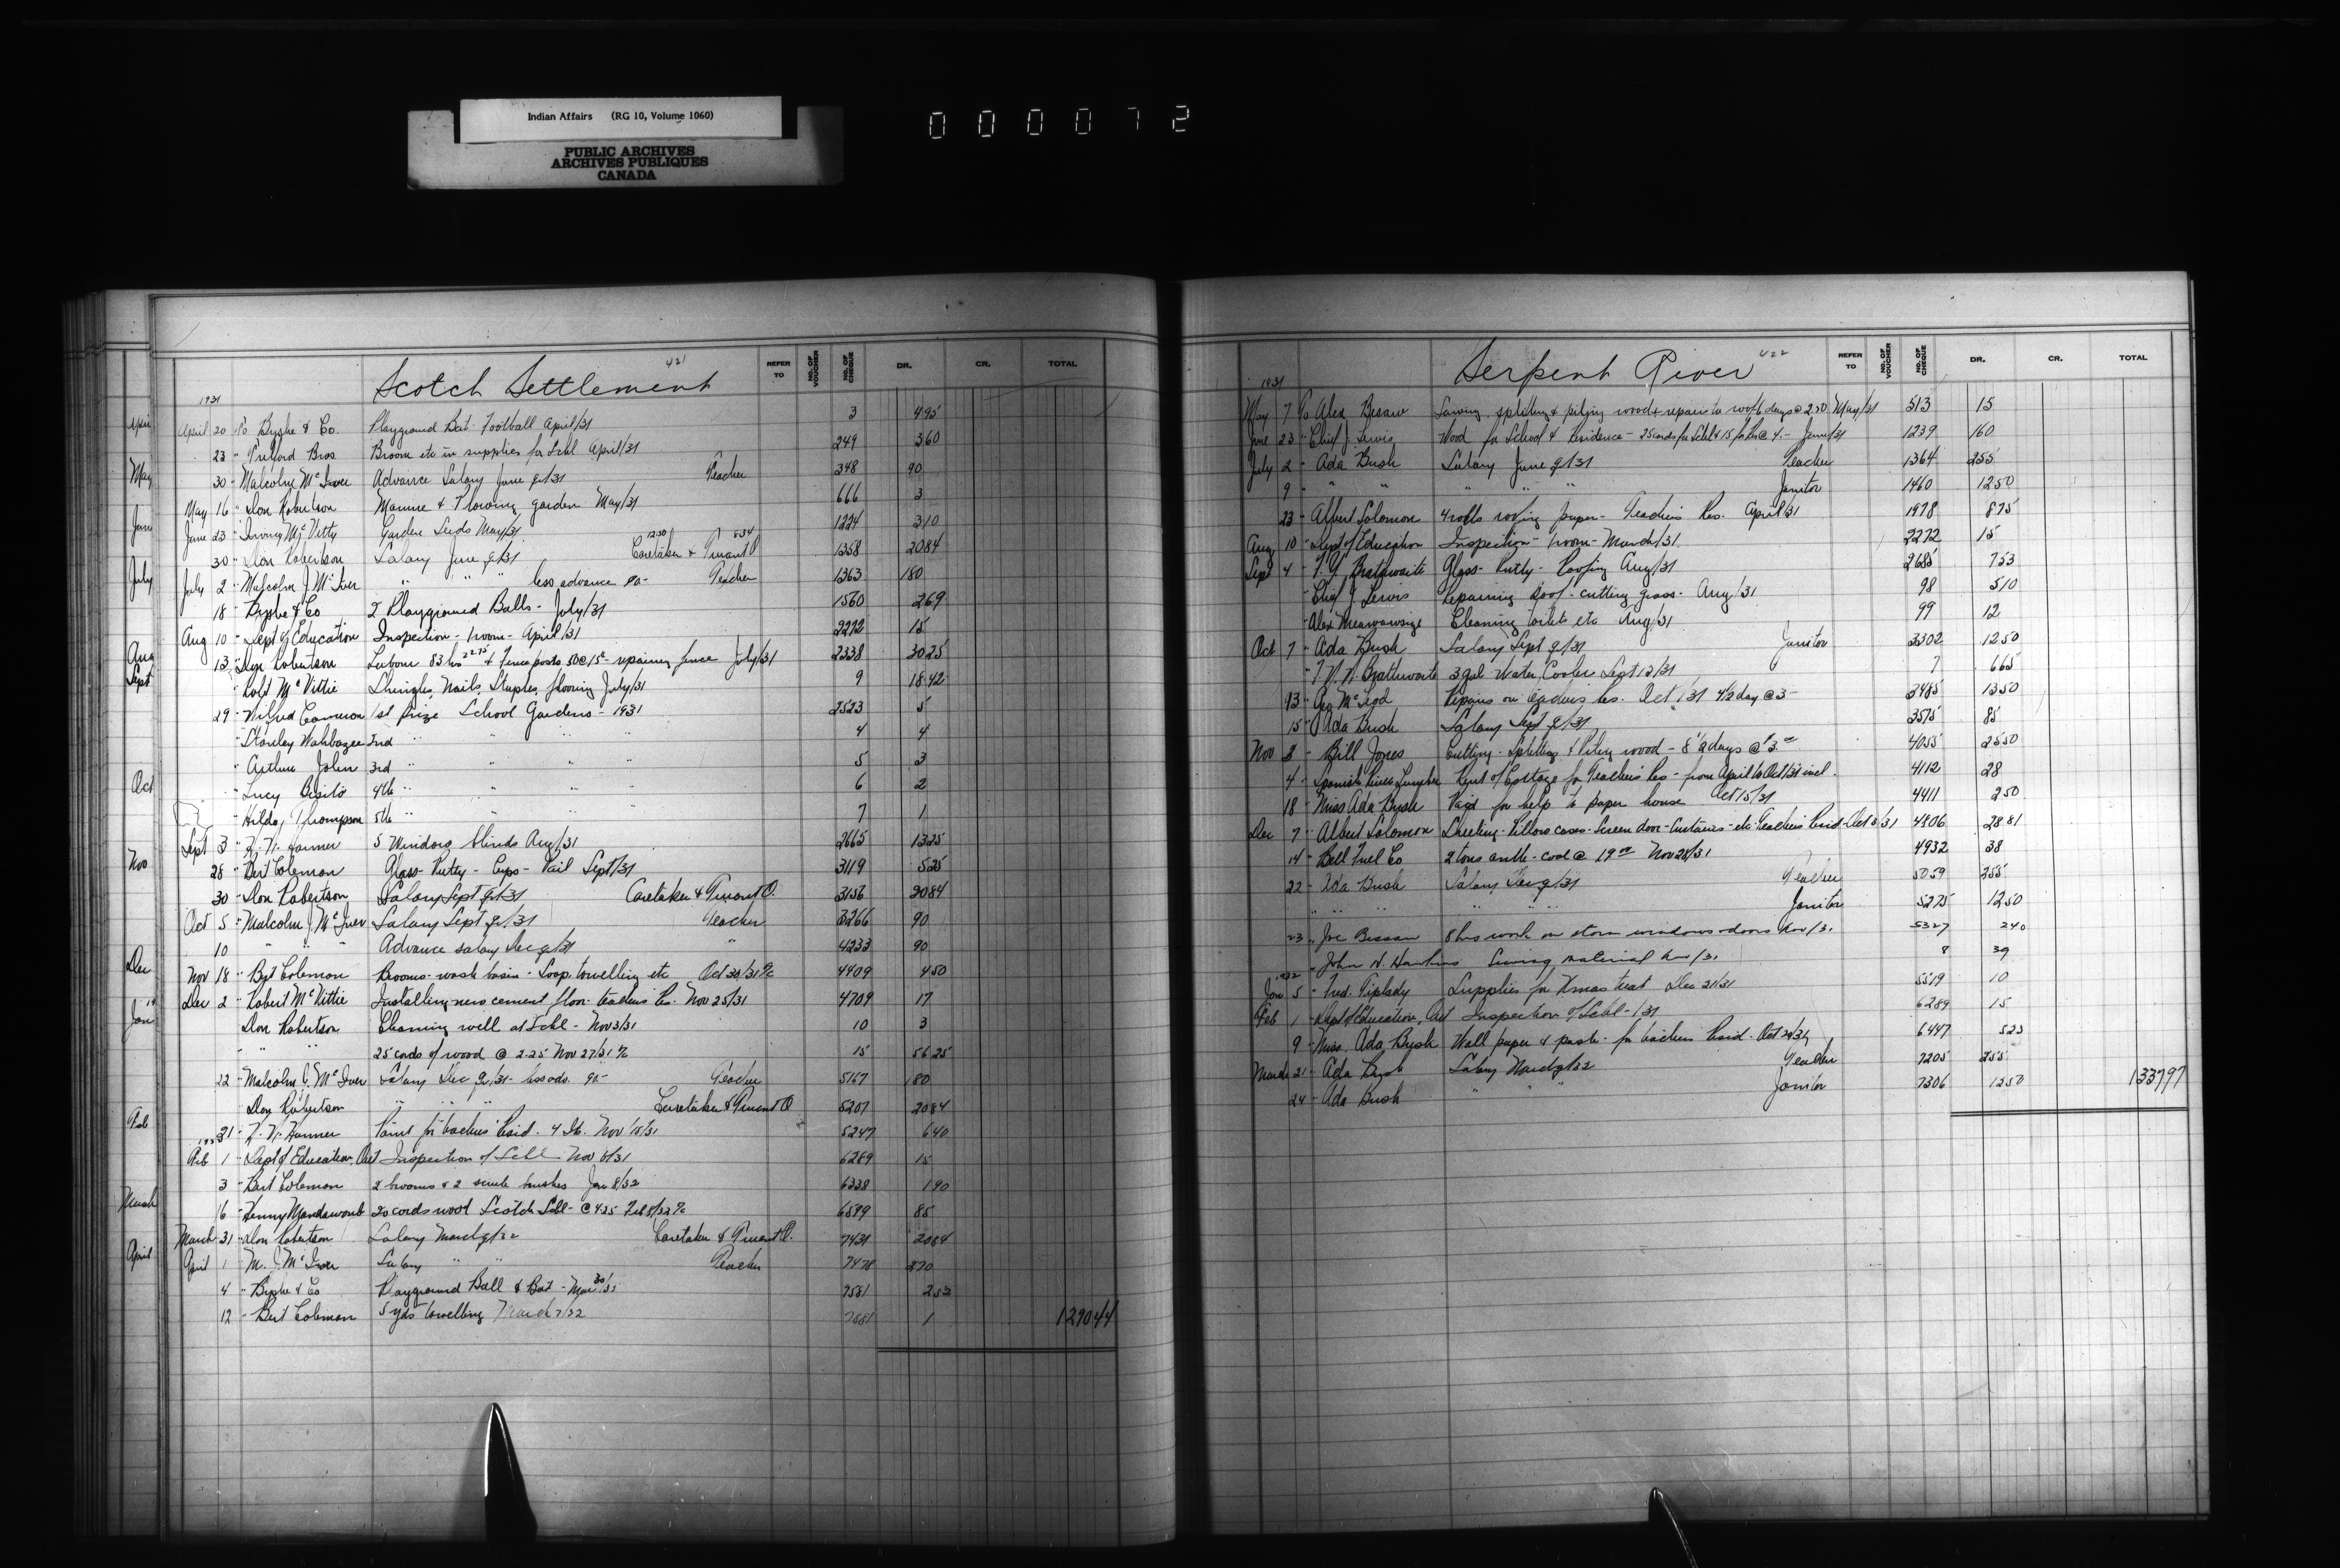 Indian Affairs (RG 10, Volume 1060)
PUBLIC ARCHIVES
ARCHIVES PUBLIQUES
CANADA
000072
421
Scotch Settlement
REFER TO NO. OF VOUCHER NO. OF CHEQUE DR. CR. TOTAL
1931
April 20 To Byshe & Co. Playground Bat. Football April/31 3 4 95
23 " Bros Broom etc in supplies for Schl April/31 249 3 60
30 " Malcolm McIver Advance Salary June qr/31 Teacher 348 90
May 16 " Don Robertson Manure & Plowing garden May/31 666 3
June 23 " Irving McVitty Garden Seeds May/31 1224 3 10
30 " Don Robertson Salary June qr/31 12.50 Caretaker & Truant O 8.34 1358 20 84
July 2 " Malcolm J. McIver " " " less advance 90- Teacher 1363 180
18 " Byshe & Co 2 Playground Balls - July/31 1560 2 69
Aug 10 " Dept of Education Inspection - 1 room - April/31 2272 15
13 " Don Robertson Labour 83 hrs 22.75 & Fence posts 50@15c - repairing fence July/31 2338 30 25
" Robt McVittie Shingles, Nails, Staples, flooring July/31 9 18 42
29 " Wilfred Cameron 1st prize School Gardens - 1931 2523 5
" Stanley Wahbazee 2nd " " " " 4 4
" Arthur John 3rd " " " " 5 3
" Lucy 4th " " " " 6 2
" Hilda Thompson 5th " " " " 7 1
Sept 3 " 5 Window blinds Aug/31 2665 13 25
28 " Bert Coleman Glass - Putty - Cups - Pail Sept/31 3119 5 25
30 " Don Robertson Salary Sept qr/31 Caretaker & Truant O. 3156 20 84
Oct 5 " Malcolm J. McIver Salary Sept qr/31 Teacher 3266 90
10 " " " Advance salary Dec qr/31 " 4233 90
Nov 18 " Bert Coleman Brooms - wash basin - Soap, towelling etc Oct 30/31 4409 4 50
Dec 2 " Robert McVittie Installing new cement floor - teachers Res. Nov 25/31 4709 17
Don Robertson Cleaning well at Schl - Nov 3/31 10 3
" " 25 cords of wood @ 2.25 Nov 27/31 15 56 25
22 " Malcolm J. McIver Salary Dec qr/31 - less adv. 90- Teacher 5167 180
Don Robertson " " " Caretaker & Truant O 5207 20 84
31 " Paint for teachers' Resid. 4 Nov 18/31 5247 6 40
1932
Feb 1 " Dept of Education, Ont Inspection of Schl Nov 6/31 6289 15
3 " Bert Coleman 2 brooms & 2 scrub brushes Jan 8/32 6338 1 90
16 " Henny 20 cords wood Scotch Schl - @ 4.25 Feb 8/32 6599 85
March 31 " Don Robertson Salary March qr/32 Caretaker & Truant O. 7431 20 84
April 1 " M. J. McIver Salary " " Teacher 7478 270
4 " Byshe & Co Playground Ball & Bat - Mar 30/32 7581 2 53
12 " Bert Coleman 5 yds towelling March 7/32 7881 1 1290 44
422
Serpent River
REFER TO NO. OF VOUCHER NO. OF CHEQUE DR. CR. TOTAL
1931
May 7 To Alex Bissaw Sawing, splitting & pilying wood & repairs to roof 6 days @ 2.50 May/31 513 15
June 23 " Chief J. Lewis Wood for School & Residence - 25 cords for Schl & 15 for Res @ 4.- June/31 1239 160
July 2 " Ada Bush Salary June qr/31 Teacher 1364 255
9 " " " " " " Janitor 1460 12 50
23 " Albert Solomon 4 rolls roofing paper - Teachers Res. April/31 1978 8 75
Aug 10 " Dept of Education Inspection - 1 room - March/31 2272 15
Sept 4 " Brathwaite Glass - Putty - Roofing Aug/31 2685 7 53
" Chief J. Lewis Repairing Roof - cutting grass - Aug/31 98 5 10
" Alex Cleaning toilets etc Aug/31 99 12
Oct 7 " Ada Bush Salary Sept qr/31 Janitor 3302 12 50
" Brathwaite 3 gal Water Cooler Sept 12/31 7 6 65
13 " Geo McLeod Repairs on teachers Res. Oct 1/31 4½ day @ 3- 3485 13 50
15 " Ada Bush Salary Sept qr/31 3575 85
Nov 3 " Bill Jones Cutting - Splitting & Piling wood - 8½ days @ $3.00 4055 25 50
4 " Spanish River Lumber Rent of Cottage for Teachers Res - from April to Oct/31 incl. 4112 28
18 " Miss Ada Bush Paid for help to paper house Oct 15/31 4411 2 50
Dec 7 " Albert Solomon Sheeting - Pillow cases - Screen door - Curtains - etc Teachers Resid - Oct 8/31 4806 28 81
14 " Bell Fuel Co 2 tons anth. coal @ 19.00 Nov 28/31 4932 38
22 " Ada Bush Salary Dec qr/31 Teacher 5059 255
" " " " " " Janitor 5275 12 50
23 " Joe Bissaw 8 hrs work on storm windows & doors Nov/31 5327 2 40
" John N. Hawkins Sewing material Nov/31 8 39
1932
Jan 5 " Fred. Tiplady Supplies for Xmas treat Dec 21/31 5519 10
Feb 1 " Dept of Education, Ont Inspection of Schl - /31 6289 15
9 " Miss. Ada Bush Wall paper & paste - for teachers Resid. Oct 29/31 6447 5 23
March 21 " Ada Bush Salary March qr/32 Teacher 7205 255
24 " Ada Bush " " Janitor 7306 12 50 1337 97